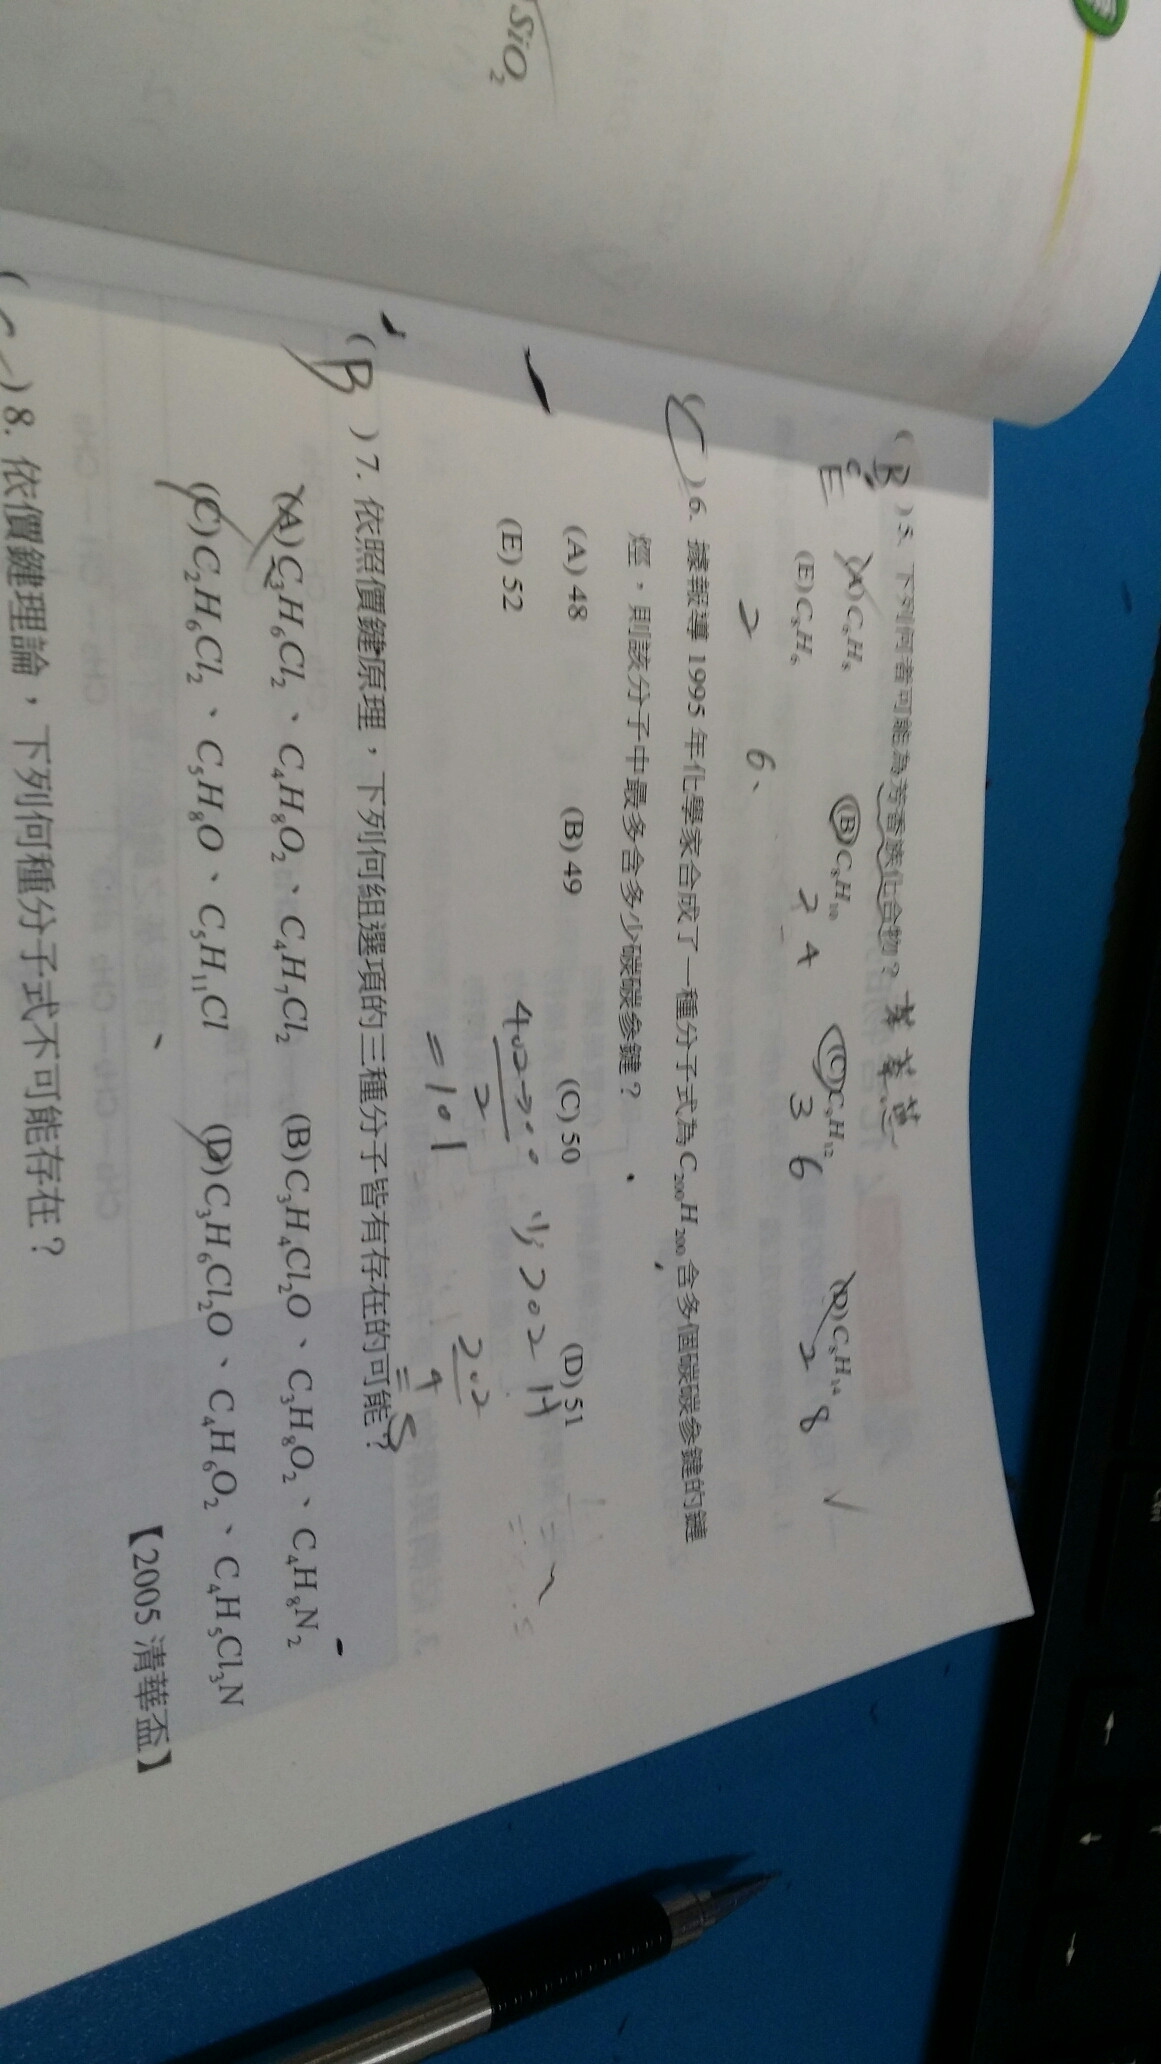 SiO₂
( B C E ) 5. 下列何者可能為芳香族化合物?
(B) C₈H₁₀ (C) C₉H₁₂
(E) C₈H₆
2 4 3 6 2 8 √
2 6、
) 6. 據報導 1995 年化學家合成了一種分子式為 C₂₀₀H₂₀₀ 含多個碳碳參鍵的鏈
烴,則該分子中最多含多少碳碳參鍵?
(A) 48 (B) 49 (C) 50 (D) 51
(E) 52
少 202 H
2
= 101
202
4
( B ) 7. 依照價鍵原理,下列何組選項的三種分子皆有存在的可能?
(A) C₃H₆Cl₂、C₄H₈O₂、C₄H₇Cl₂ (B) C₃H₄Cl₂O、C₃H₈O₂、C₄H₈N₂
(C) C₂H₆Cl₂、C₅H₈O、C₅H₁₁Cl (D) C₃H₆Cl₂O、C₄H₆O₂、C₄H₅Cl₃N
【2005 清華盃】
) 8. 依價鍵理論,下列何種分子式不可能存在?